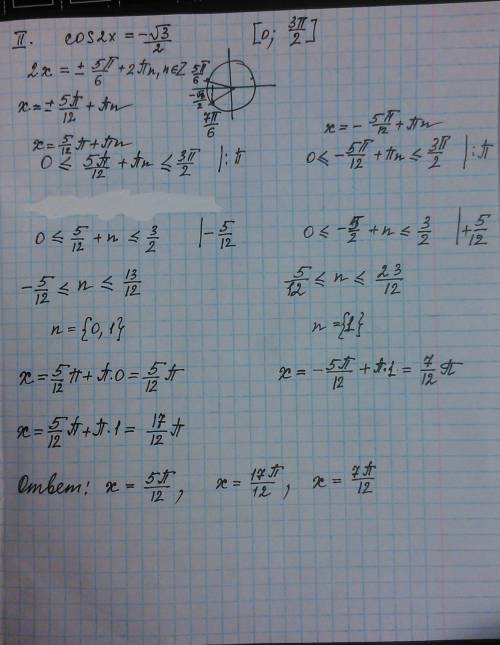 II. cos2x = -√3/2 [0; 3π/2]
2x = ± 5π/6 + 2πn, n∈Z
5π/6
-√3/2
7π/6
x = ± 5π/12 + πn
x = 5/12 π + πn
0 ≤ 5π/12 + πn ≤ 3π/2 | : π
0 ≤ 5/12 + n ≤ 3/2 | - 5/12
-5/12 ≤ n ≤ 13/12
n = {0, 1}
x = 5/12 π + π·0 = 5/12 π
x = 5/12 π + π·1 = 17/12 π
x = - 5π/12 + πn
0 ≤ - 5π/12 + πn ≤ 3π/2 | : π
+ n ≤ 3/2 | + 5/12
5/12 ≤ n ≤ 23/12
n = {1}
x = - 5π/12 + π·1 = 7/12 π
Ответ: x = 5π/12, x = 17π/12, x = 7π/12